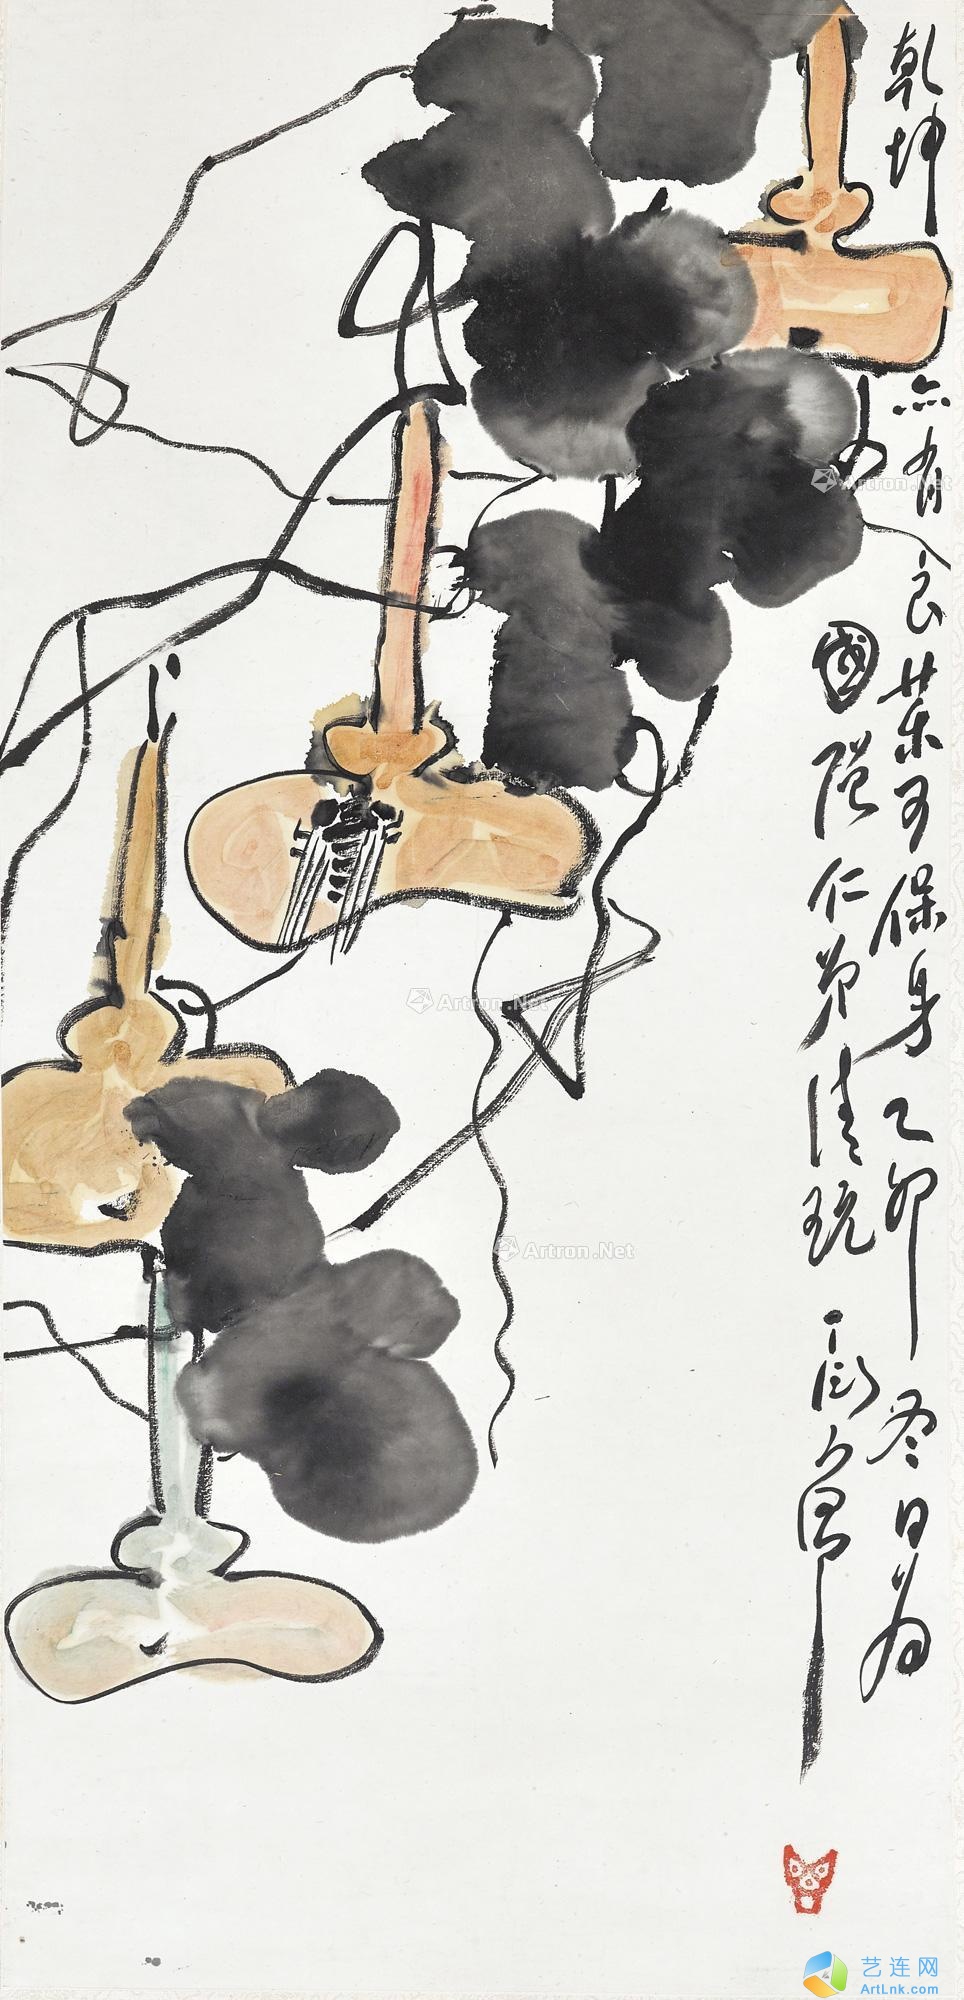 乾坤
亦有食藥可保身乙卯冬日為
國強仁弟清玩一
Artron.Net
Artron.Net
Artron.Net
艺连网
ArtLnk.com